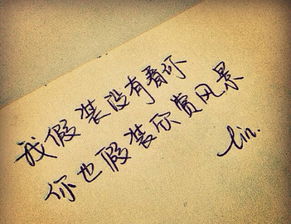 我假装没有看你
你也假装欣赏风景
Lin.